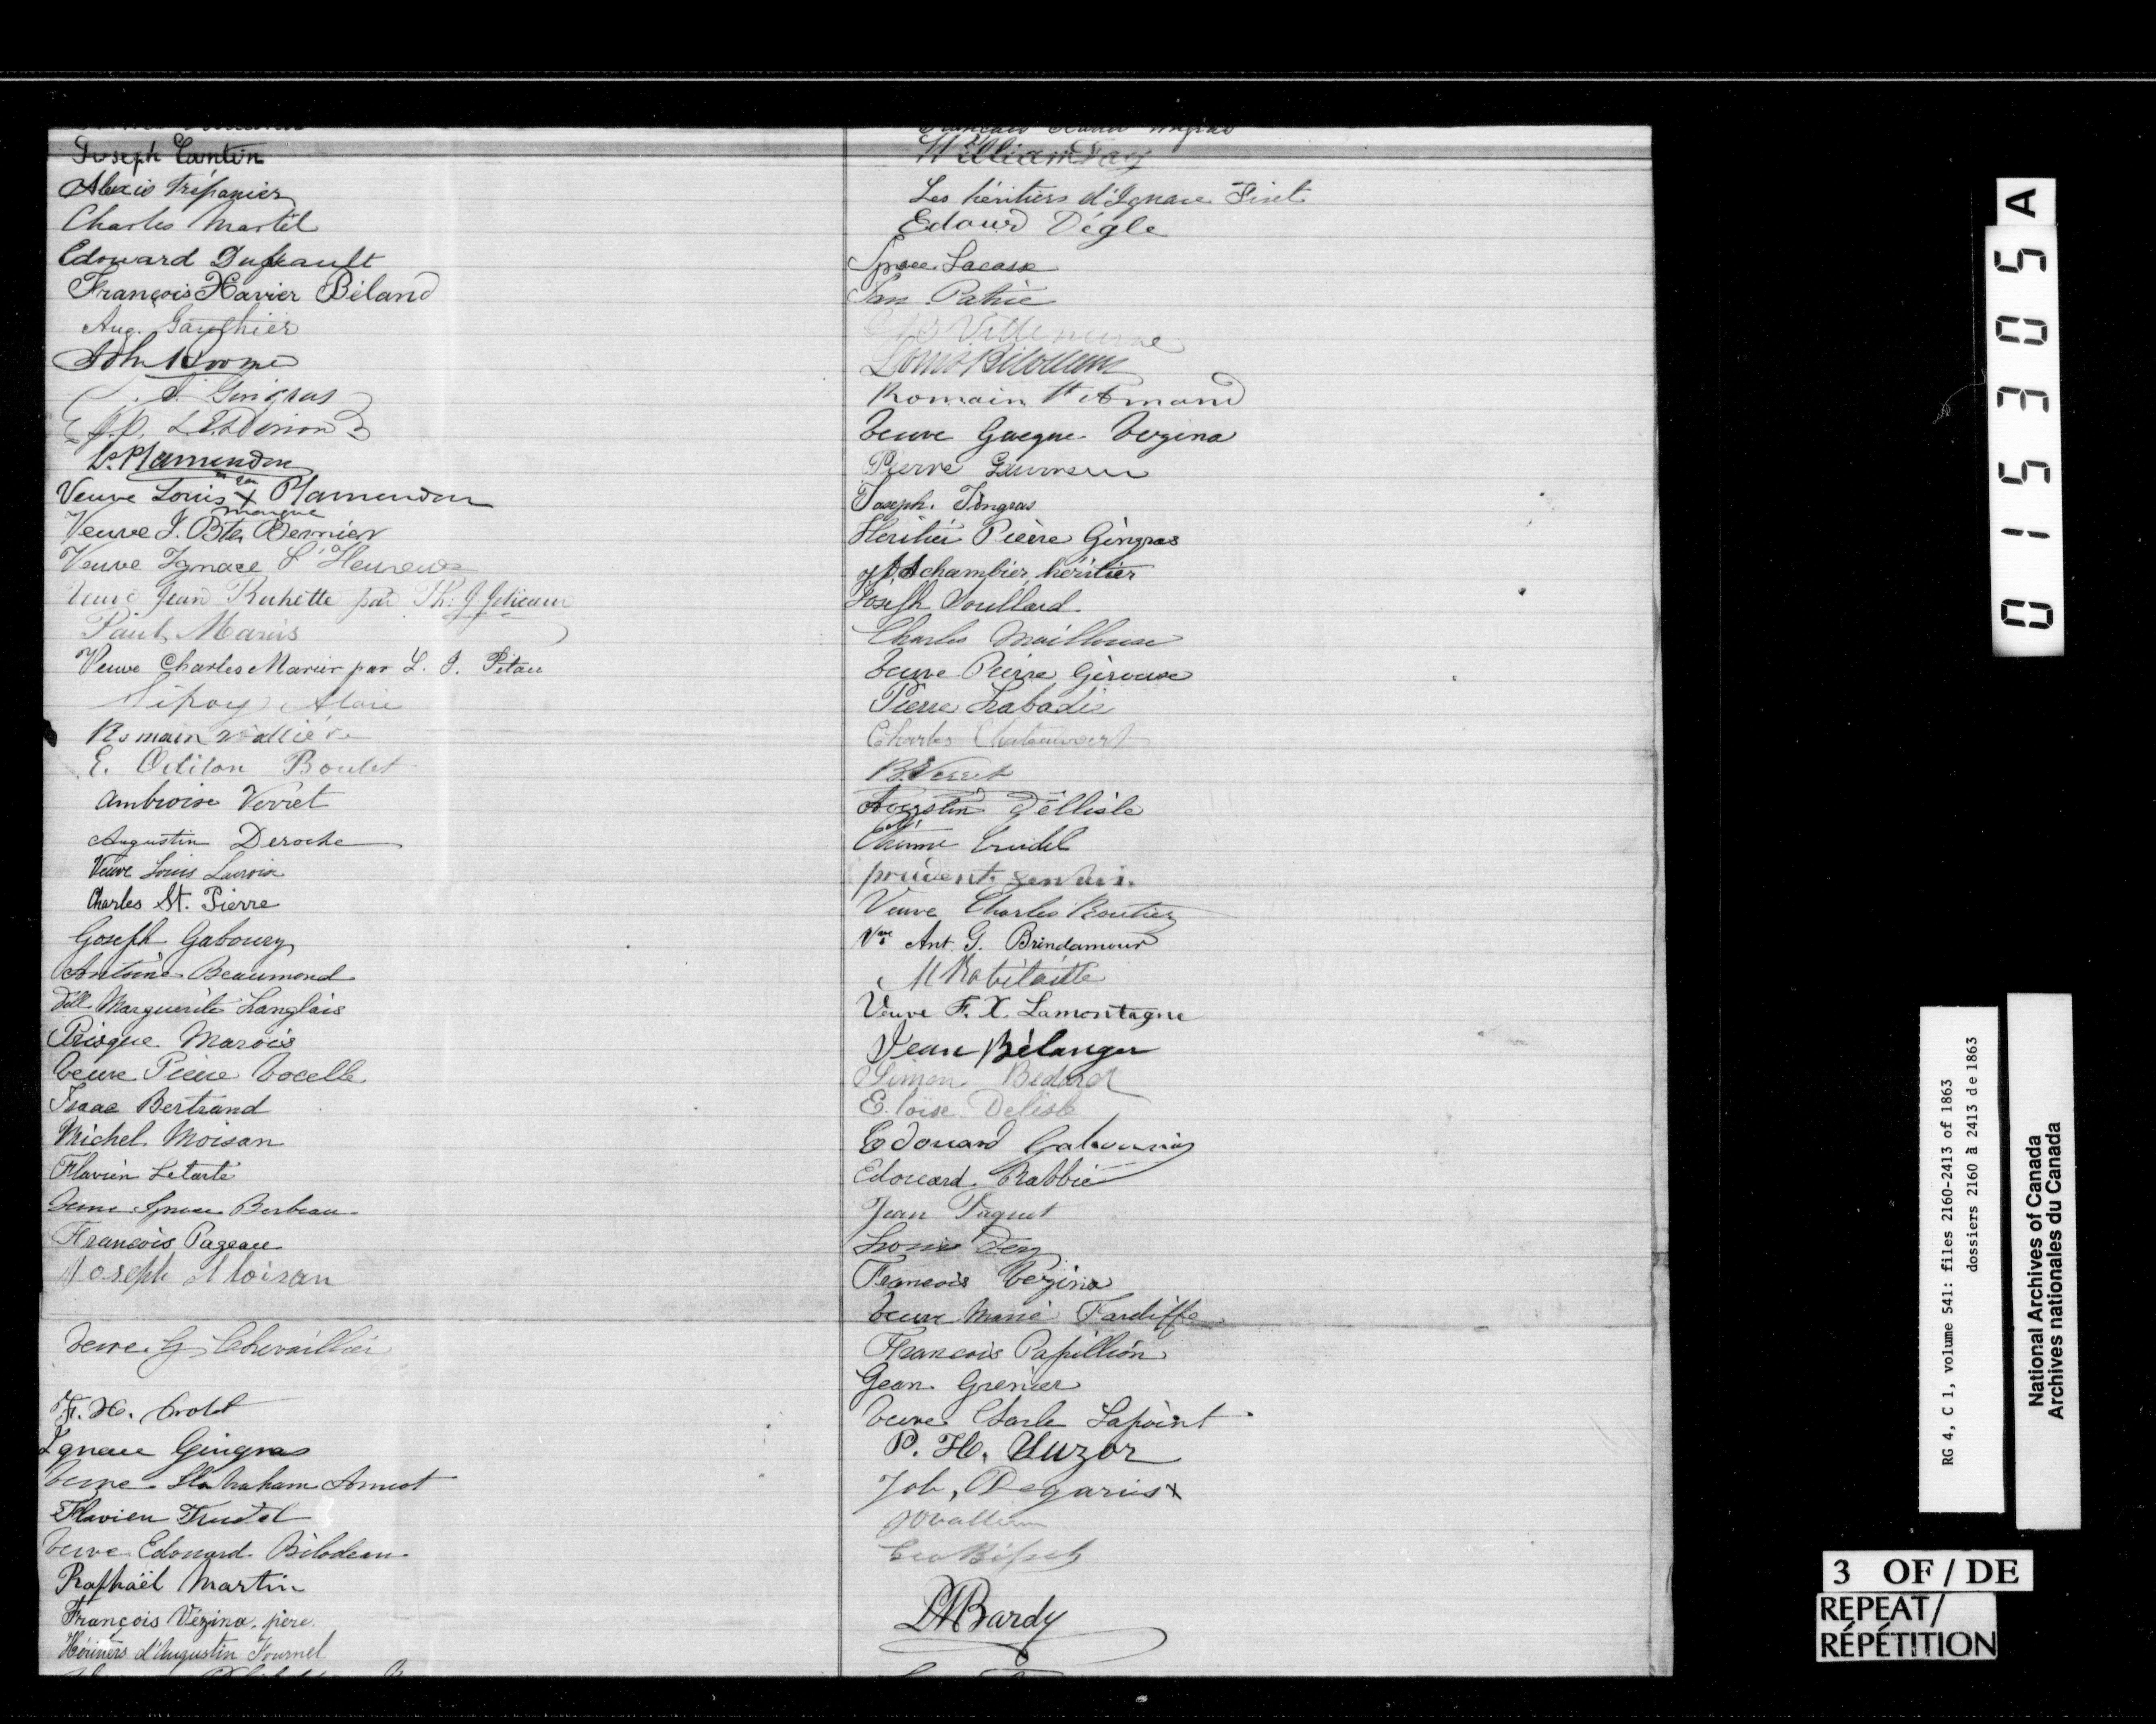 Joseph Cantin
Alexis Trépanier
Charles Martel
Edouard Dupeault
François Xavier Béland
Aug. Gauthier
John Roome
J. Gingras
L. E. Dorion
Ls. Plamondon
Veuve Louis sa X marque Plamondon
Veuve J. Bte. Bernier
Veuve Ignace L'Heureux
Veuve Jean Rochette par Th: J. Jolicoeur
Paul Marois
Veuve Charles Marier par L. J. Pitau
Alarie
Romain Vallière
E. Odilon Boulet
Ambroise Verret
Augustin Deroche
Veuve Louis Lacroix
Charles St. Pierre
Goseph Gaboury
Antoine Beaumond
Dlle Marguerite Langlais
Prisque Marois
Veuve Pierre Vocelle
Isaac Bertrand
Michel Moisan
Flavien Letarte
Veuve Ignace Berbeau
François Pageau
Joseph Moisan
Veuve G Chevaillier
F. X. Drolet
Ignace Gingras
Veuve Abraham Amiot
Flavien Trudel
Veuve Edouard Bilodeau
Raphaël Martin
François Vézina, père.
Héritiers d'Augustin Fournel
William Fay
Les héritiers d'Ignace Fiset
Edouard Dégle
Ignace Lacasse
Patrie
Villeneuve
Louis Bilodeau
Romain St Amand
Veuve Gacque Vezina
Pierre Gauvreau
Joseph. Gingras
Héritier Pierre Gingras
Achambier héritier
Joseph Soullard
Charles Mailloux
Veuve Pierre Giroux
Pierre Labadie
Charles Chateauvert
B. Verret
Augustin Dellisle
Trudel
prudent gervais
Veuve Charles Routier
Vve Ant. G. Brindamour
M Robitaille
Veuve F. X. Lamontagne
Jean Bélanger
Simon Bedard
E. loïse Delisle
Edouard Gaboury
Edouard Rabbie
Jean Paquet
Louis Dery
Francois Vezina
Veuve Marie Tardiffe
Francois Papillion
Gean Grenier
Veuve Charle Lapoint
P. H. Suzor
Job, Degaris X
P M Bardy
015305 A
RG 4, C 1, volume 541: files 2160-2413 of 1863
dossiers 2160 à 2413 de 1863
National Archives of Canada
Archives nationales du Canada
3 OF / DE
REPEAT/
RÉPÉTITION